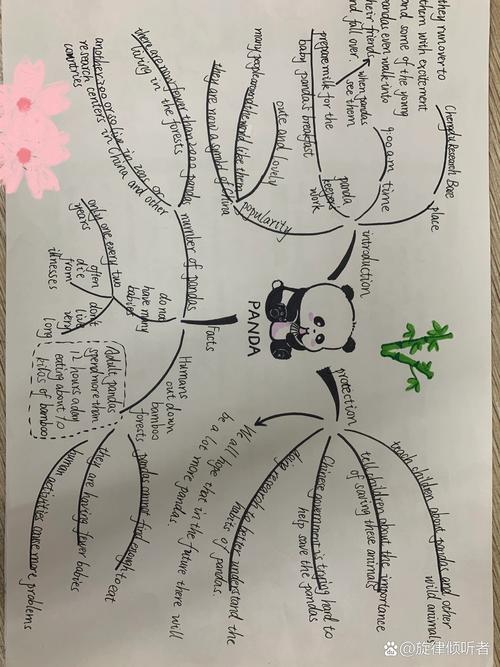 PANDA
introduction
place
Chengdu Research Base
time
9:00 a.m
panda
keepers
work
prepare milk for the
baby panda's breakfast
when pandas
see them
they run over to
them with excitement
and some of the young
pandas even walk into
their friends
and fall over.
popularity
cute and lovely
many people around the world like them
they are now a symbol of China
Facts
number of pandas
there are now fewer than 2000 pandas
living in the forests
another 200 or so live in zoos or
research centers in China and other
countries
do not
have many
babies
only one every two
years
often
die
from
illnesses
don't
live
very
long
Adult pandas
spend more than
12 hours a day
eating about 10
kilos of bamboo
Humans
cut down
bamboo
forests
pandas cannot find enough to eat
they are having fewer babies
human activities cause more problems
protection
teach children about pandas and other
wild animals
tell children about the importance
of saving these animals
Chinese government is trying hard to
help save the pandas
research to better understand the
habits of pandas.
We all hope that in the future there will
be a lot more pandas.
@旋律倾听者